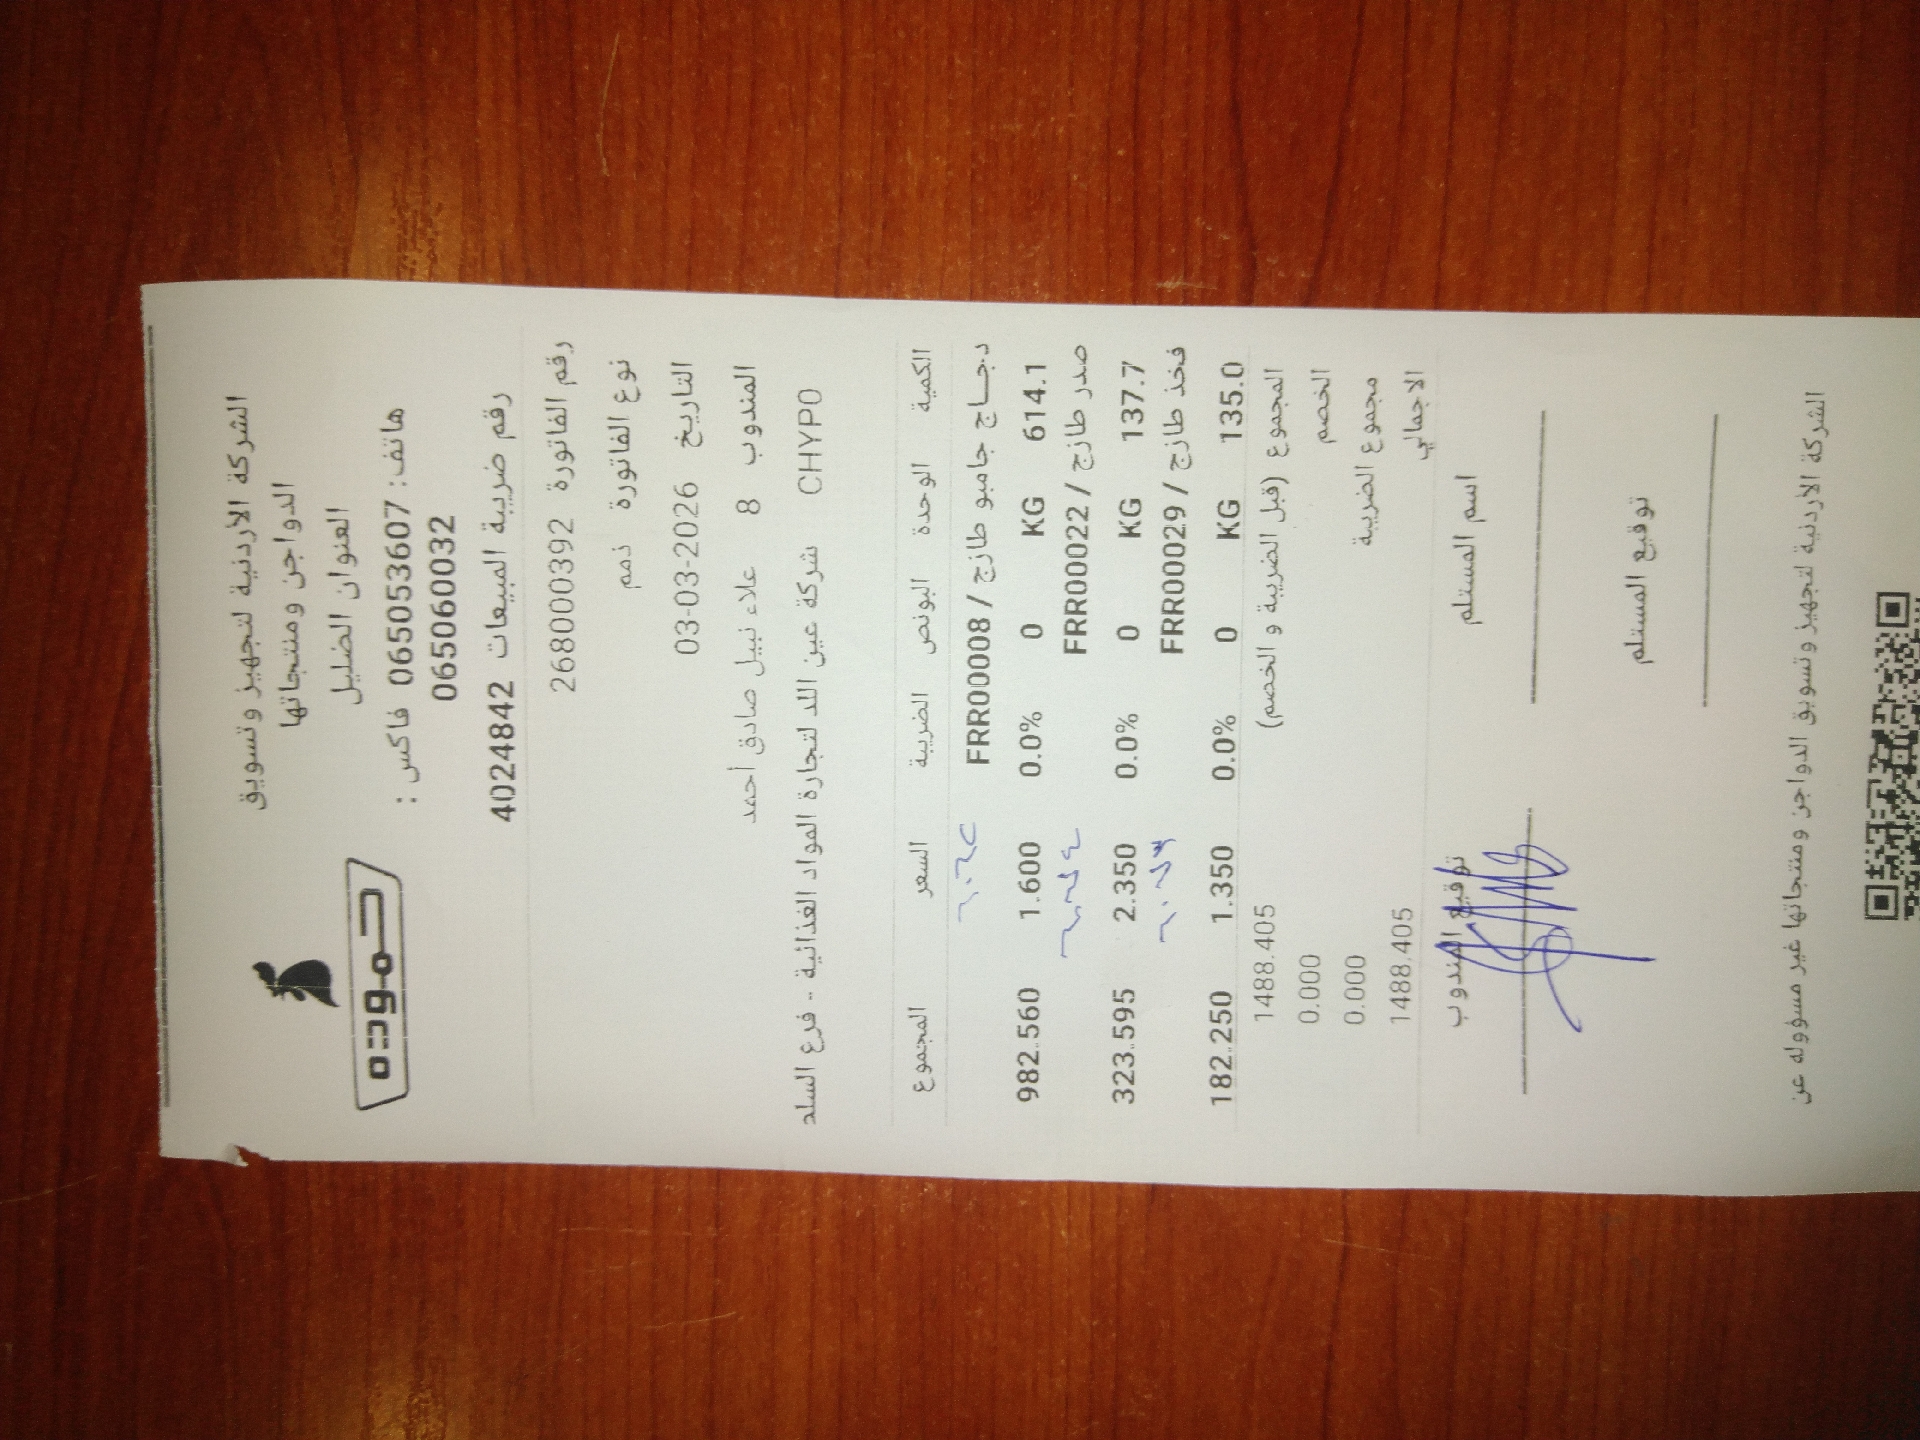 حمودة
الشركة الأردنية لتجهيز وتسويق
الدواجن ومنتجاتها
العنوان الضليل
هاتف: 065053607 فاكس :
065060032
رقم ضريبة المبيعات 4024842
رقم الفاتورة 268000392
نوع الفاتورة ذمم
التاريخ 03-03-2026
المندوب 8 علاء نبيل صادق أحمد
CHYP0 شركة عين اللد لتجارة المواد الغذائية - فرع السلد
الكمية الوحدة البونص الضريبة السعر المجموع
دجاج جامبو طازج / FRR00008
614.1 KG 0 0.0% 1.600 982.560
صدر طازج / FRR00022
137.7 KG 0 0.0% 2.350 323.595
فخذ طازج / FRR00029
135.0 KG 0 0.0% 1.350 182.250
المجموع (قبل الضريبة و الخصم) 1488.405
الخصم 0.000
مجموع الضريبة 0.000
الاجمالي 1488.405
اسم المستلم توقيع المندوب
توقيع المستلم
الشركة الأردنية لتجهيز وتسويق الدواجن ومنتجاتها غير مسؤوله عن